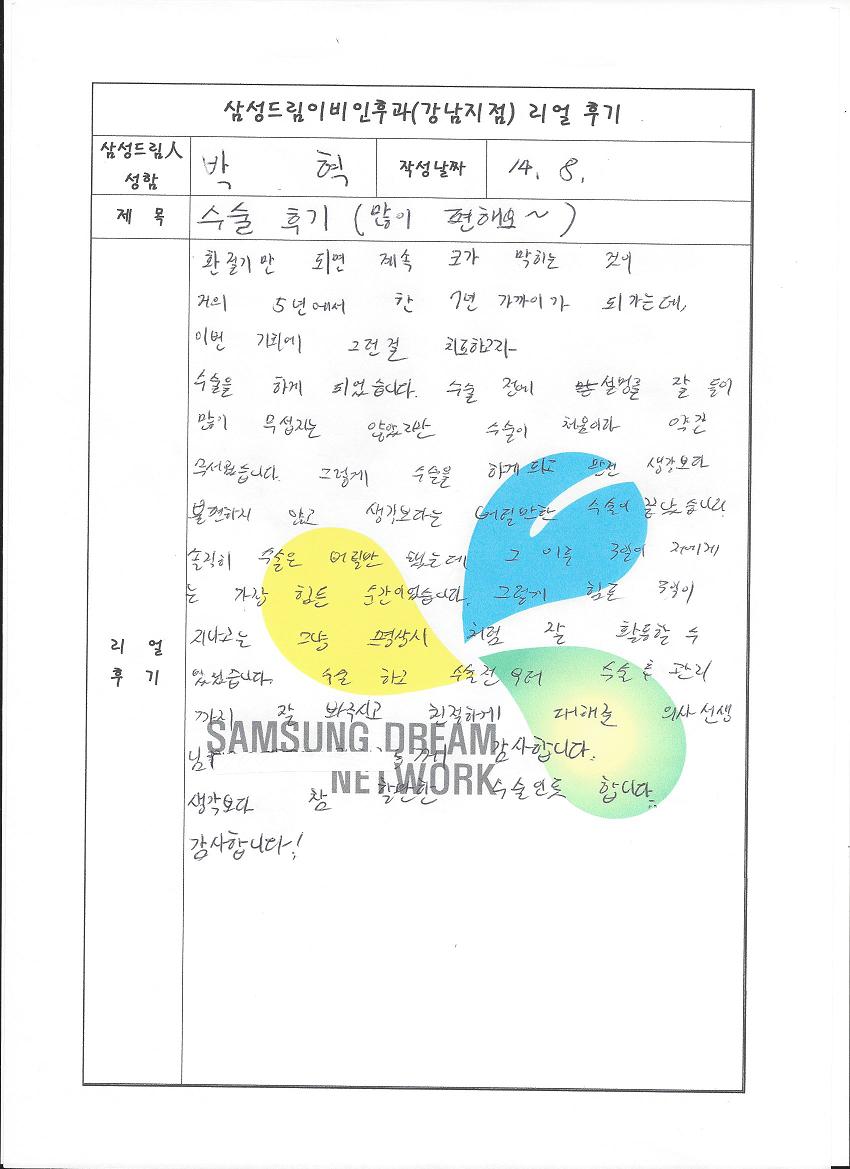 삼성드림이비인후과(강남지점) 리얼 후기
삼성드림人 성함
박 혁
작성날짜
14. 8.
제 목
수술 후기 (많이 편해요~)
리 얼 후 기
환절기만 되면 계속 코가 막히는 것이
거의 5년에서 한 7년 가까이가 되가는데,
이번 기회에 그런걸 치료하고라
수술을 하게 되었습니다. 수술 전에 설명를 잘 들어
많이 무섭지는 않았지만 수술이 처음이라 약간
무서웠습니다. 그렇게 수술을 하게되고 생각보다
불편하지 않고 생각보다는 버틸만한 수술이 끝났습니다.
솔직히 수술은 버틸만 했는데 그 이후 3일이 저에게
는 가장 힘든 순간이었습니다. 그렇게 힘든 3일이
지나고는 그냥 평상시 처럼 잘 활동할 수
있었습니다. 수술 하고 수술전부터 수술 후 관리
까지 잘 봐주시고 친절하게 대해준 의사선생
님 들께 감사합니다.
생각보다 참 할만한 수술인듯 합니다.
감사합니다!
SAMSUNG DREAM
NETWORK